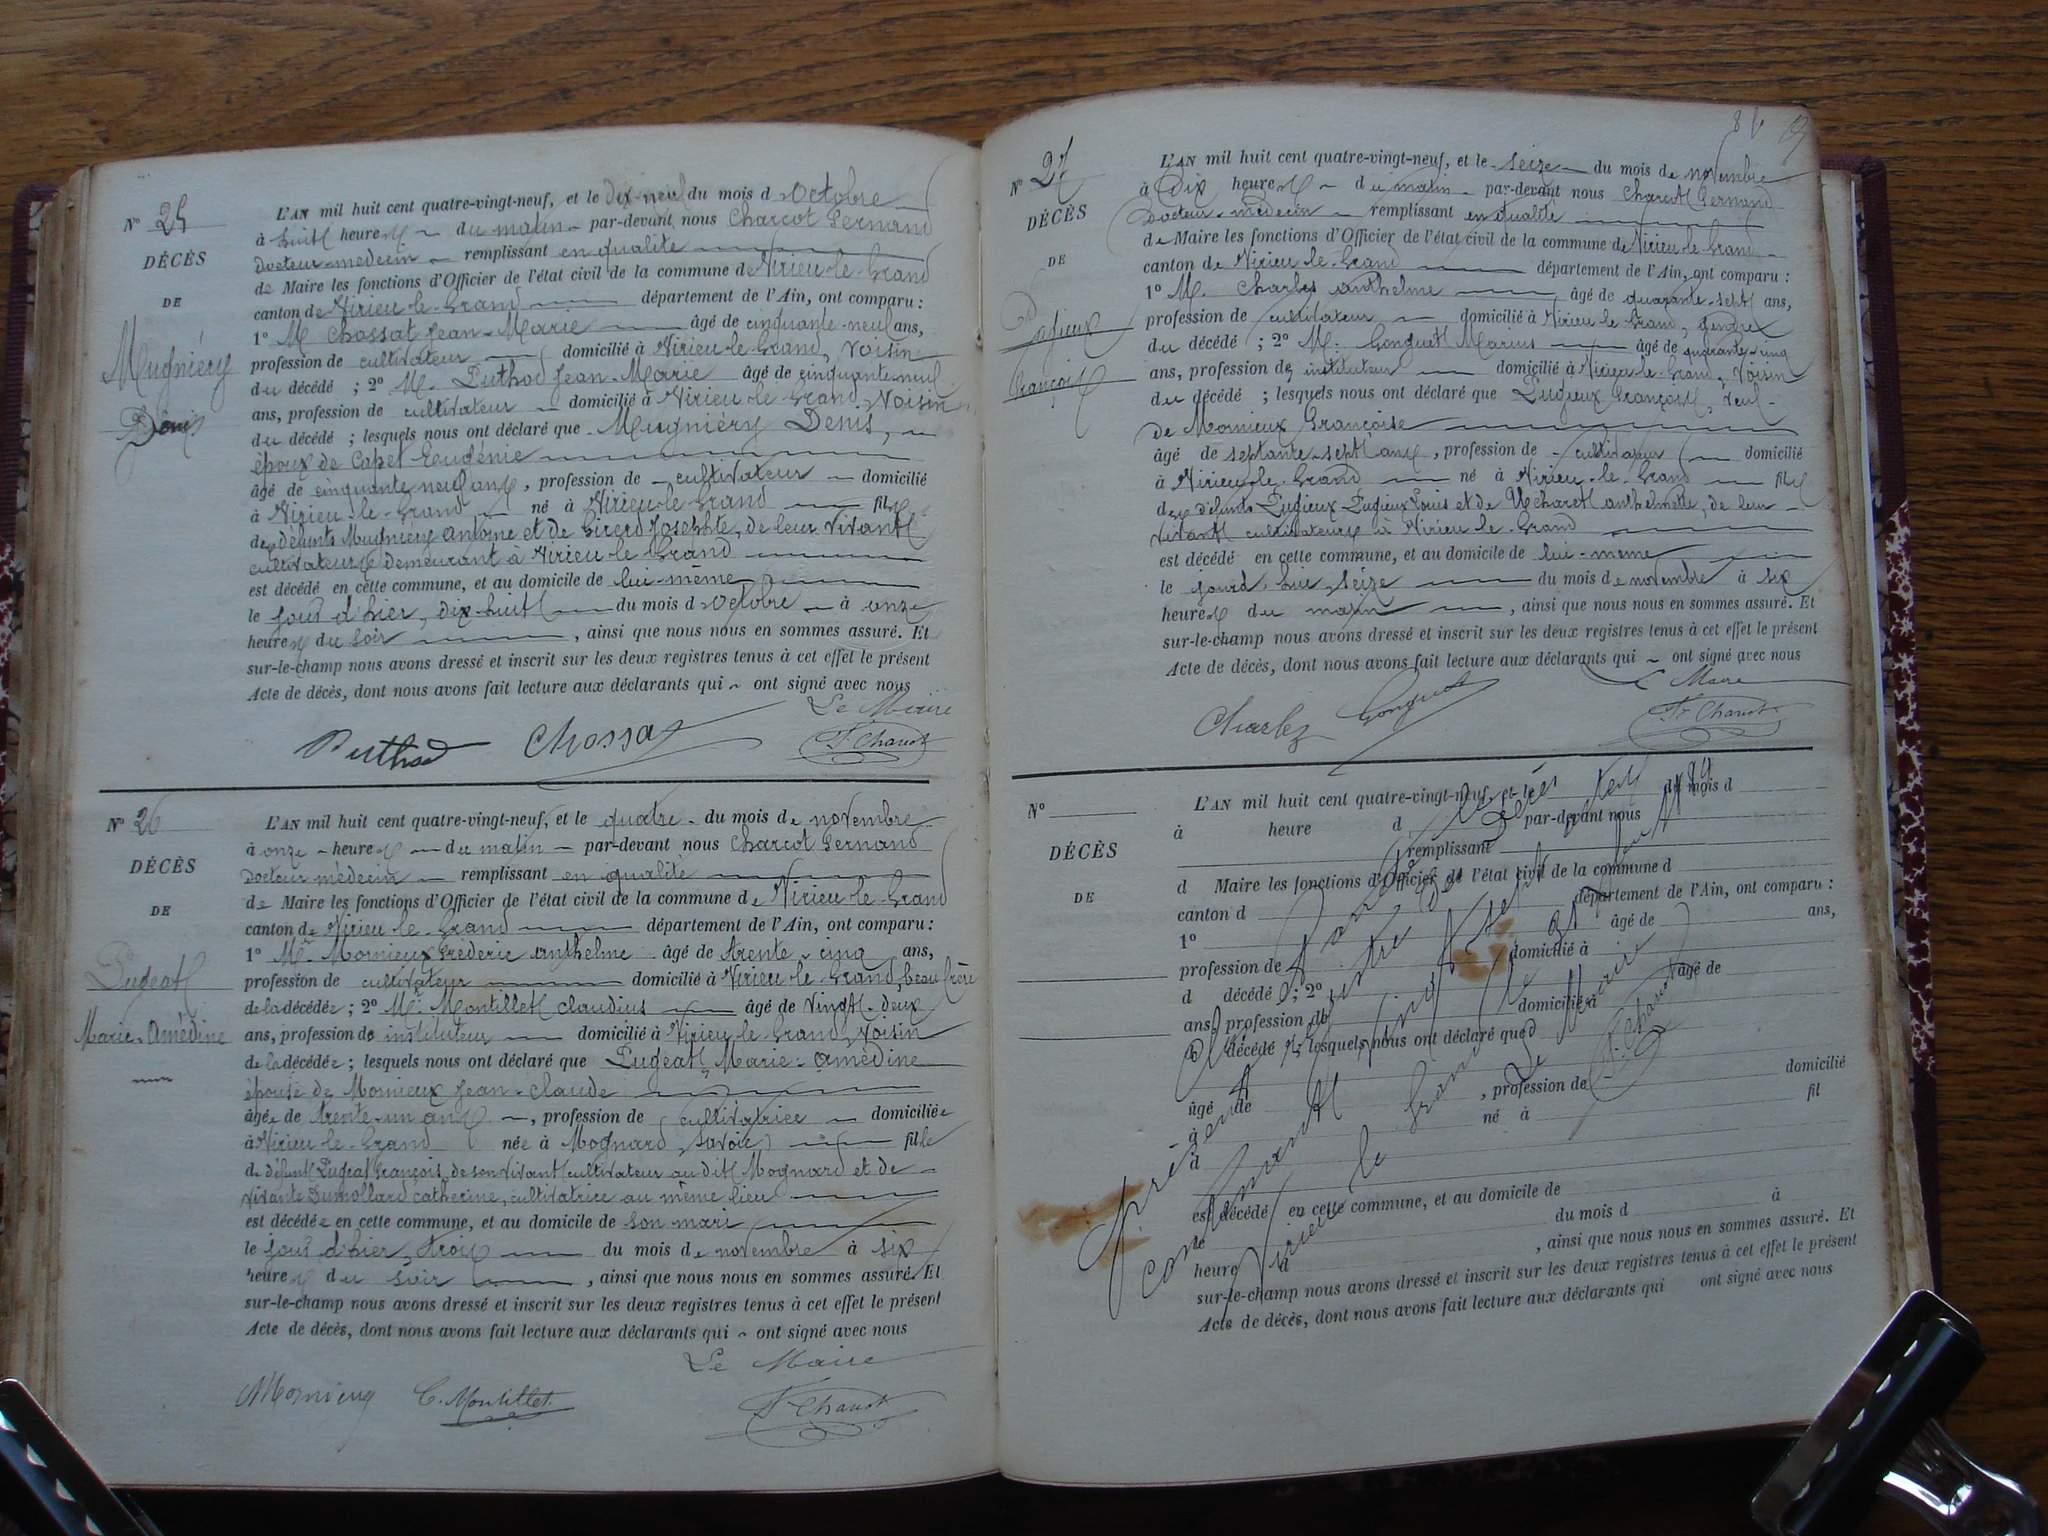 N° 25
DÉCÈS
DE
Mugniéry
Denis
L'AN mil huit cent quatre-vingt-neuf, et le dix-neuf du mois d'octobre
à huit heures du matin par-devant nous Charcot Fernand
Docteur-médecin remplissant en qualité
de Maire les fonctions d'Officier de l'état civil de la commune de Virieu-le-Grand
canton de Virieu-le-Grand département de l'Ain, ont comparu :
1° M. Chossat Jean-Marie âgé de cinquante-neuf ans,
profession de cultivateur domicilié à Virieu-le-Grand, voisin
du décédé ; 2° M. Puthod Jean-Marie âgé de cinquante-neuf
ans, profession de cultivateur domicilié à Virieu-le-Grand, voisin
du décédé ; lesquels nous ont déclaré que Mugniéry Denis,
époux de Capet Eugénie
âgé de cinquante neuf ans, profession de cultivateur domicilié
à Virieu-le-Grand né à Virieu-le-Grand fils
des défunts Mugniéry Antoine et de Girerd Josephte, de leur vivant
cultivateurs demeurant à Virieu le Grand
est décédé en cette commune, et au domicile de lui-même
le jour d'hier, dix-huit du mois d'octobre à onze
heures du soir, ainsi que nous nous en sommes assuré. Et
sur-le-champ nous avons dressé et inscrit sur les deux registres tenus à cet effet le présent
Acte de décès, dont nous avons fait lecture aux déclarants qui ont signé avec nous
Le Maire
Puthod Chossat F. Charcot
N° 26
DÉCÈS
DE
Pugeat
Marie-Amédine
L'AN mil huit cent quatre-vingt-neuf, et le quatre du mois de novembre
à onze heures du matin par-devant nous Charcot Fernand
Docteur médecin remplissant en qualité
de Maire les fonctions d'Officier de l'état civil de la commune de Virieu-le-Grand
canton de Virieu-le-Grand département de l'Ain, ont comparu :
1° Mr. Mornieux Fréderic Anthelme âgé de trente-cinq ans,
profession de cultivateur domicilié à Virieu le Grand, beau frère
de la décédée ; 2° Mr. Montillet Claudius âgé de vingt-deux
ans, profession de instituteur domicilié à Virieu-le-Grand, voisin
de la décédée ; lesquels nous ont déclaré que Pugeat Marie-Amédine
épouse de Mornieux Jean-Claude
âgée de trente-un ans, profession de cultivatrice domiciliée
à Virieu-le-Grand née à Mognard (Savoie) fille
de défunt Pugeat François, de son vivant cultivateur au dit Mognard et de
vivante Dumollard Catherine, cultivatrice au même lieu
est décédée en cette commune, et au domicile de son mari
le jour d'hier, trois du mois de novembre à six
heures du soir, ainsi que nous nous en sommes assuré. Et
sur-le-champ nous avons dressé et inscrit sur les deux registres tenus à cet effet le présent
Acte de décès, dont nous avons fait lecture aux déclarants qui ont signé avec nous
Le Maire
Mornieux C. Montillet F. Charcot
N° 27
DÉCÈS
DE
Pugieux
François
L'AN mil huit cent quatre-vingt-neuf, et le seize du mois de novembre
à dix heures du matin par-devant nous Charcot Fernand
Docteur-médecin remplissant en qualité
de Maire les fonctions d'Officier de l'état civil de la commune de Virieu-le-Grand
canton de Virieu-le-Grand département de l'Ain, ont comparu :
1° M. Charles Anthelme âgé de quarante-sept ans,
profession de cultivateur domicilié à Virieu-le-Grand, gendre
du décédé ; 2° M. Gonguet Marius âgé de quarante-cinq
ans, profession de instituteur domicilié à Virieu-le-Grand, voisin
du décédé ; lesquels nous ont déclaré que Pugieux François, veuf
de Mornieux Françoise
âgé de septante-sept ans, profession de cultivateur domicilié
à Virieu-le-Grand né à Virieu-le-Grand fils
des défunts Pugieux Pugieux Louis et de Anthelmette, de leur
vivant cultivateurs à Virieu-le-Grand
est décédé en cette commune, et au domicile de lui-même
le jourd'hui, seize du mois de novembre à six
heures du matin, ainsi que nous nous en sommes assuré. Et
sur-le-champ nous avons dressé et inscrit sur les deux registres tenus à cet effet le présent
Acte de décès, dont nous avons fait lecture aux déclarants qui ont signé avec nous
Le Maire
Charles Gonguet F. Charcot
N°
DÉCÈS
DE
L'AN mil huit cent quatre-vingt-neuf, et le du mois d
à heure d par-devant nous
remplissant
d Maire les fonctions d'Officier de l'état civil de la commune d
canton d département de l'Ain, ont comparu :
1° âgé de ans,
profession de domicilié à
d décédé ; 2° âgé de
ans, profession de domicilié à
d décédé ; lesquels nous ont déclaré que
âgé de , profession de domicilié
à né à fil
d
est décédé en cette commune, et au domicile de
le du mois d à
heure d , ainsi que nous nous en sommes assuré. Et
sur-le-champ nous avons dressé et inscrit sur les deux registres tenus à cet effet le présent
Acte de décès, dont nous avons fait lecture aux déclarants qui ont signé avec nous
présent
contenant
Virieu le Grand
Le Maire
F. Charcot